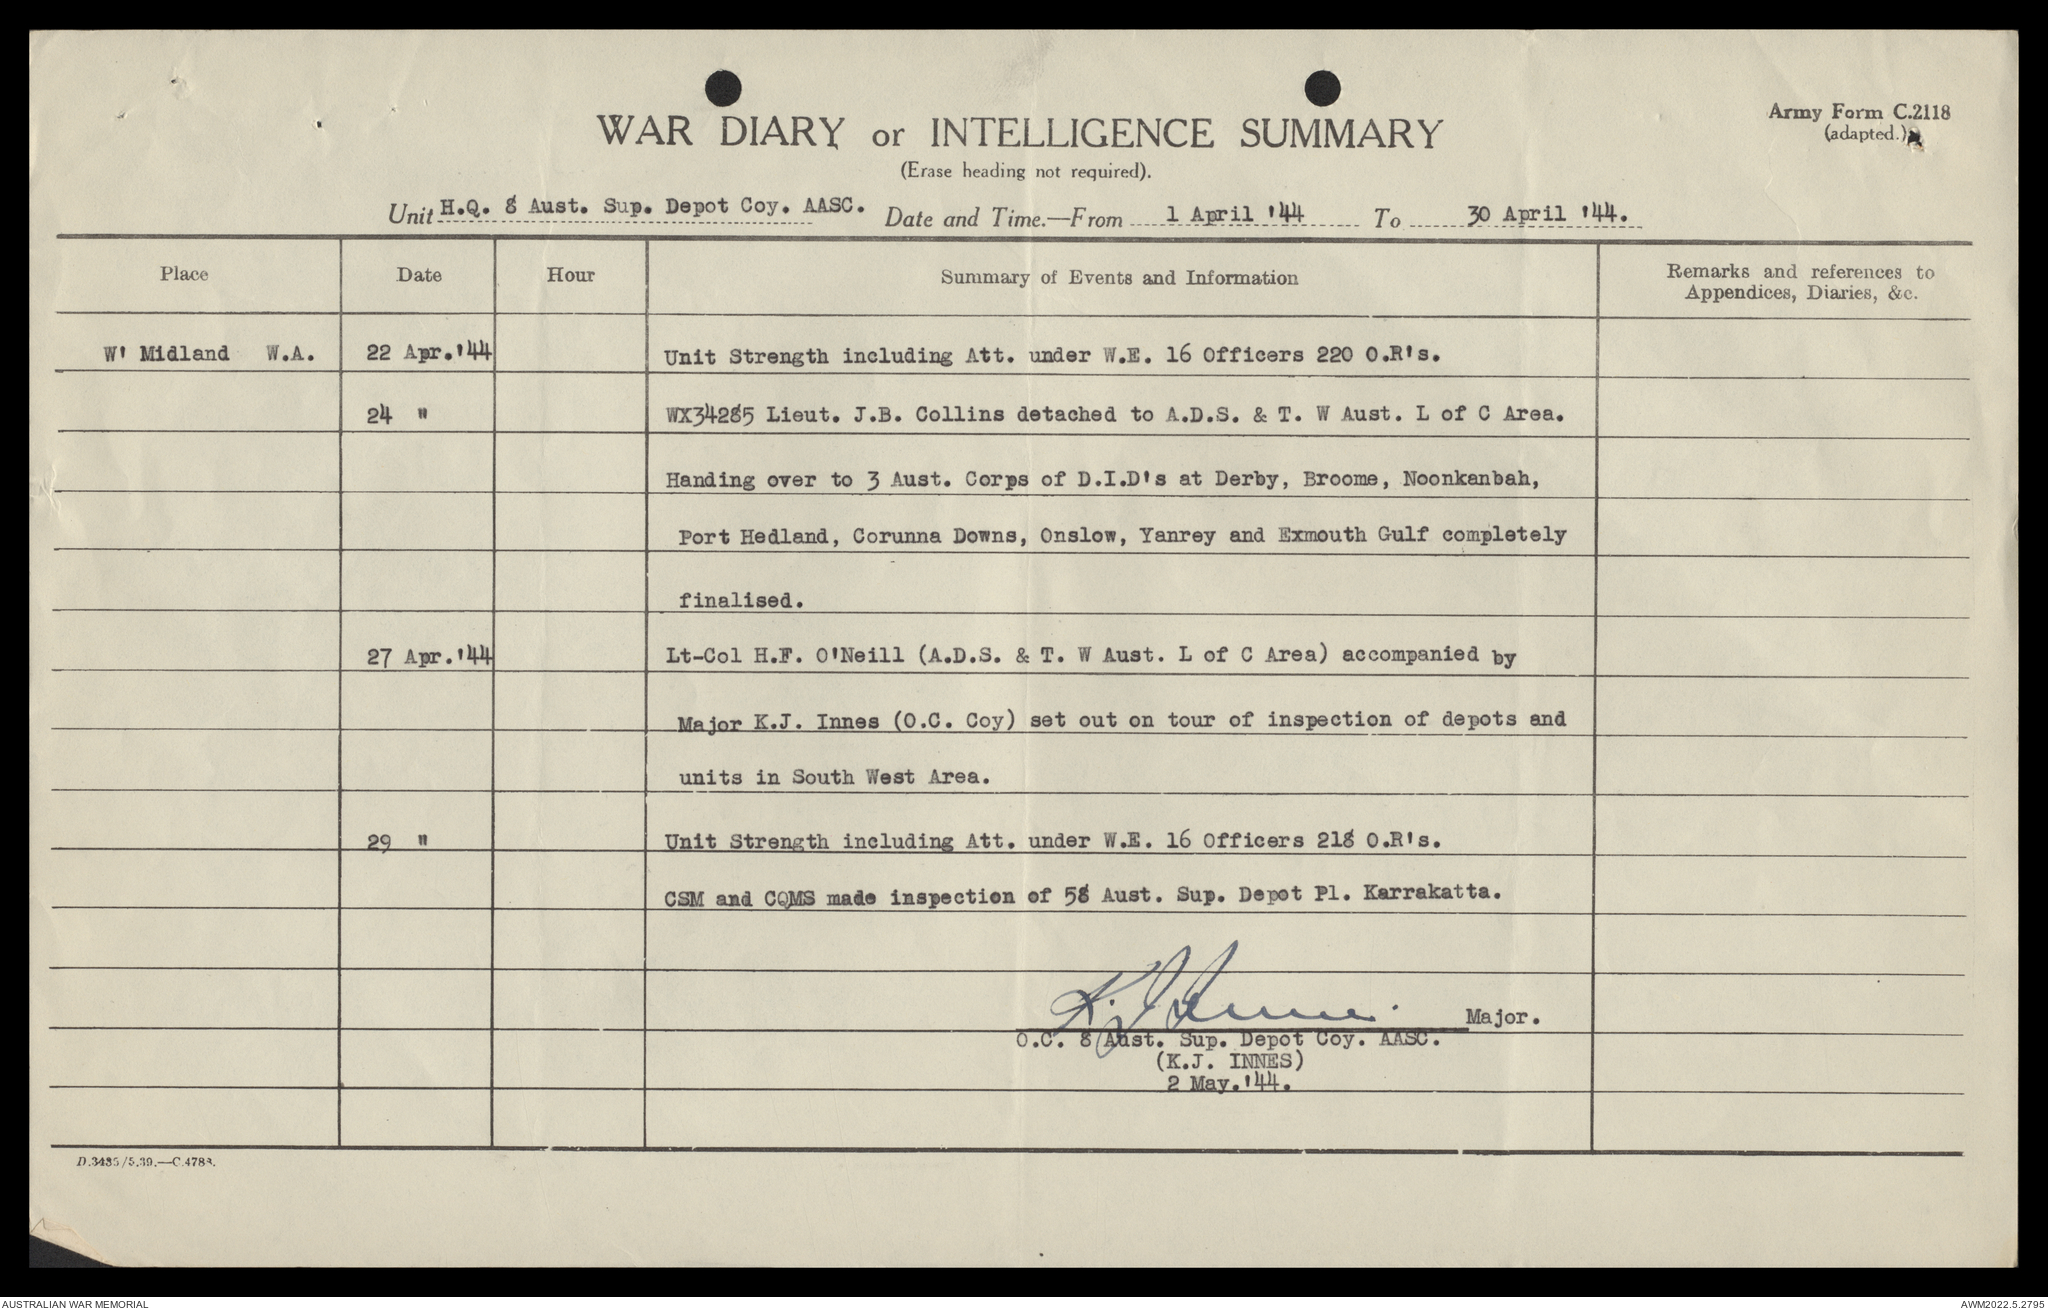 Army Form C.2118
(adapted.)
WAR DIARY or INTELLIGENCE SUMMARY
(Erase heading not required).
Unit H.Q. 8 Aust. Sup. Depot Coy. AASC. Date and Time.—From 1 April '44 To 30 April '44.
Place Date Hour Summary of Events and Information Remarks and references to
Appendices, Diaries, &c.
W' Midland W.A. 22 Apr.'44 Unit Strength including Att. under W.E. 16 Officers 220 O.R's.
24 " WX34285 Lieut. J.B. Collins detached to A.D.S. & T. W Aust. L of C Area.
Handing over to 3 Aust. Corps of D.I.D's at Derby, Broome, Noonkanbah,
Port Hedland, Corunna Downs, Onslow, Yanrey and Exmouth Gulf completely
finalised.
27 Apr.'44 Lt-Col H.F. O'Neill (A.D.S. & T. W Aust. L of C Area) accompanied by
Major K.J. Innes (O.C. Coy) set out on tour of inspection of depots and
units in South West Area.
29 " Unit Strength including Att. under W.E. 16 Officers 218 O.R's.
CSM and CQMS made inspection of 58 Aust. Sup. Depot Pl. Karrakatta.
K.J. Innes Major.
O.C. 8 Aust. Sup. Depot Coy. AASC.
(K.J. INNES)
2 May.'44.
D.3485/5.39.—C.4788.
AUSTRALIAN WAR MEMORIAL AWM2022.5.2795